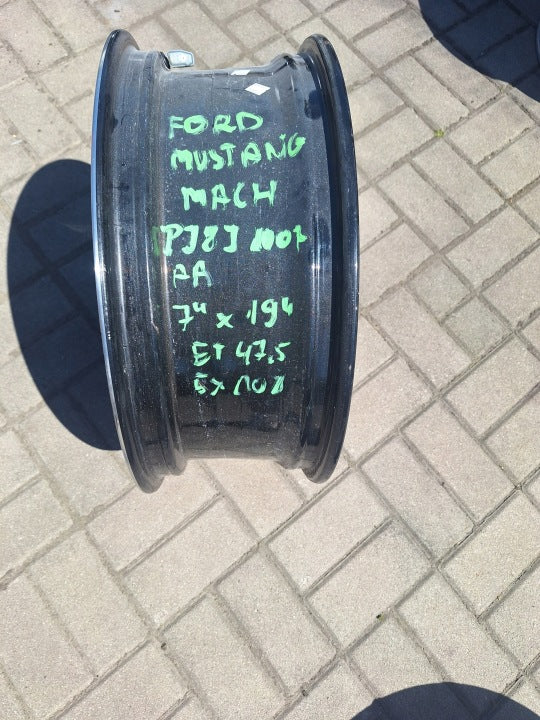 FORD
MUSTANG
MACH
PJ8J 1007
AA
7" x 19"
ET 47,5
5x108